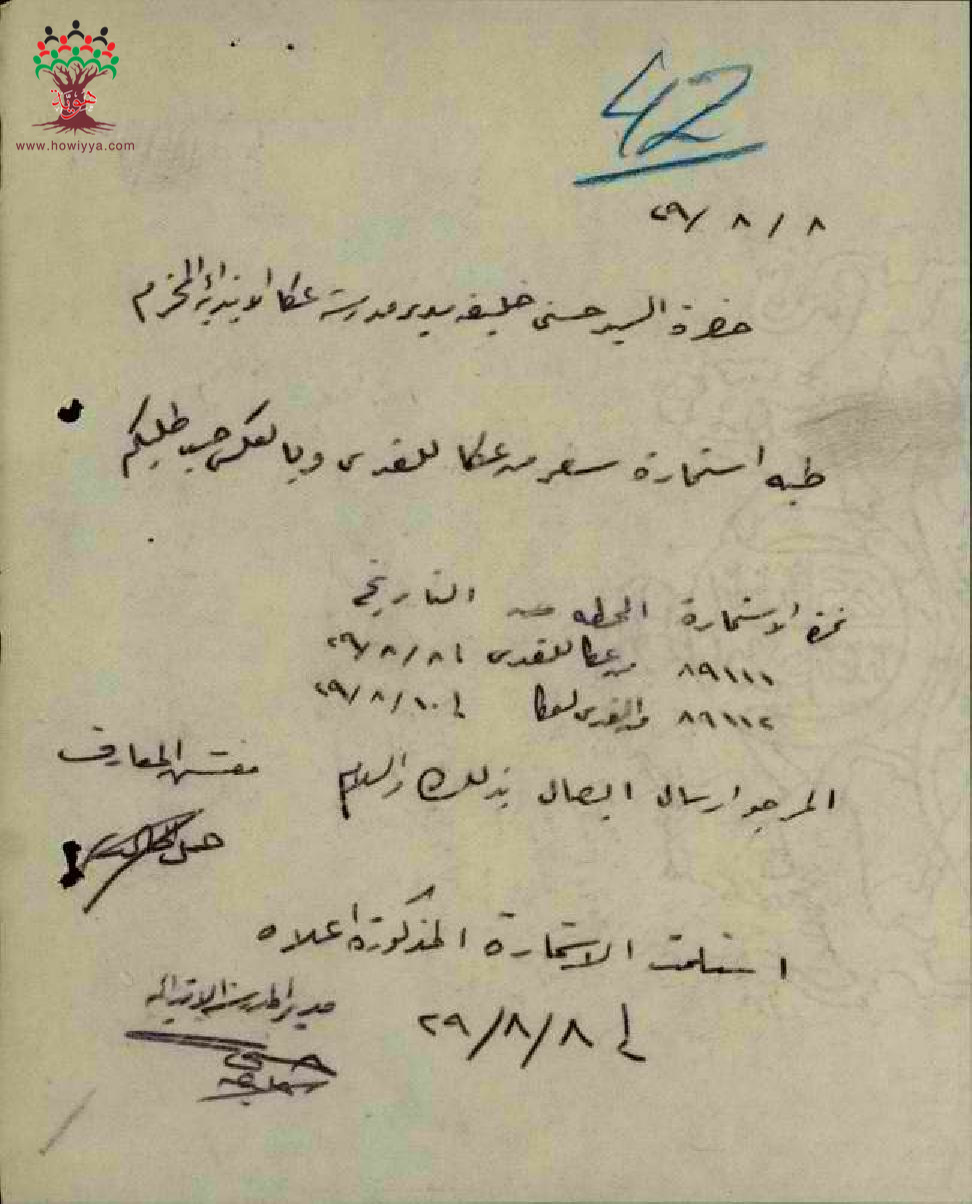 هوية
www.howiyya.com
42
٨ / ٨ /٢٩
حضرة السيد حسني خليفه مدير مدرسة عكا الابتدائية المحترم
طيه استمارة سفر من عكا للقدس وبالعكس حسب طلبكم
نمرة الاستمارة المحطه من التاريخ
٨٩١١١ من عكا للقدس في ٨/ ٨ /٢٩
٨٩١١٢ من القدس لعكا في ١٠/ ٨ /٢٩
المرجو ارسال ايصال بذلك والسلام
مفتش المعارف
استلمت الاستمارة المذكورة اعلاه
في ٨/٨/٢٩
مدير المدرسة الابتدائية
حسني
خليفه